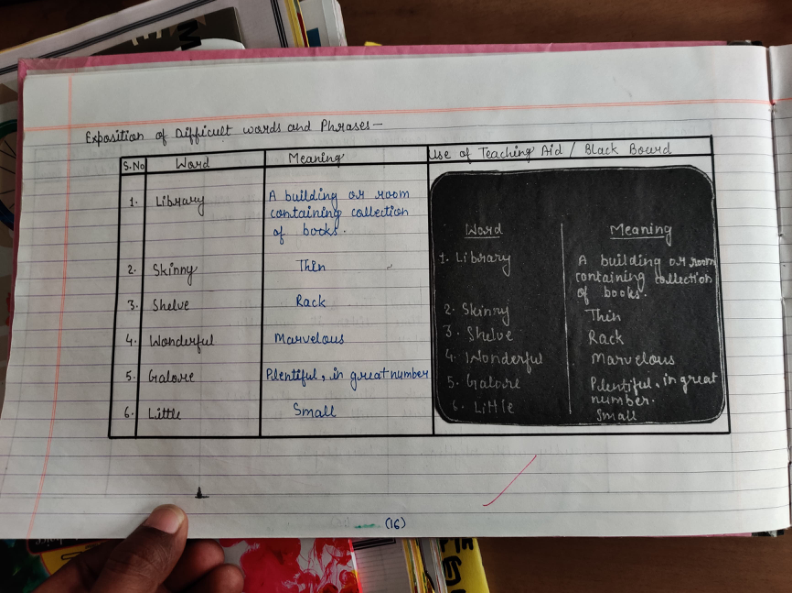 Exposition of Difficult words and Phrases—
S.No Word Meaning Use of Teaching Aid / Black Board
1. Library A building or room
containing collection
of books.
2. Skinny Thin
3. Shelve Rack
4. Wonderful Marvelous
5. Galore Plentiful, in great number
6. Little Small
Word Meaning
1. Library A building or room
containing collection
of books.
2. Skinny Thin
3. Shelve Rack
4. Wonderful Marvelous
5. Galore Plentiful, in great
number.
6. Little Small
(16)